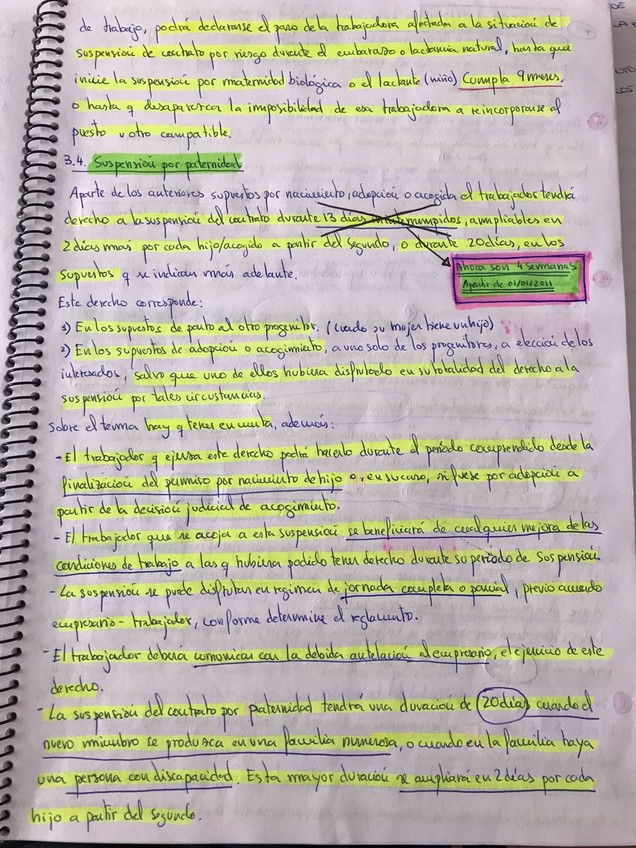 de trabajo, podrá declararse el paso de la trabajadora afectada a la situación de
suspensión de contrato por riesgo durante el embarazo o lactancia natural, hasta que
inicie la suspensión por maternidad biológica o el lactante (niño) cumpla 9 meses,
o hasta q desaparezca la imposibilidad de esa trabajadora a reincorporarse al
puesto u otro compatible.
3.4. Suspensión por paternidad
Aparte de los anteriores supuestos por nacimiento, adopción o acogida el trabajador tendrá
derecho a la suspensión del contrato durante 13 días ininterrumpidos, ampliables en
2 días mas por cada hijo/acogido a partir del segundo, o durante 20 días, en los
supuestos q se indican más adelante.
Ahora son 4 semanas
Apartir de 01/01/2011
Este derecho corresponde:
1) En los supuestos de parto al otro progenitor. (cuando su mujer tiene un hijo)
2) En los supuestos de adopción o acogimiento, a uno solo de los progenitores, a elección de los
interesados, salvo que uno de ellos hubiera disfrutado en su totalidad del derecho a la
suspensión por tales circustancias.
Sobre el tema hay q tener en cuenta, además:
- El trabajador q ejerza este derecho podrá hacerlo durante el período comprendido desde la
finalización del permiso por nacimiento de hijo o, en su caso, si fuese por adopción a
partir de la decisión judicial de acogimiento.
- El trabajador que se acoja a esta suspensión se beneficiará de cualquier mejora de las
condiciones de trabajo a las q hubiera podido tener derecho durante su período de suspensión
- La suspensión se puede disfrutar en régimen de jornada completa o parcial, previo acuerdo
empresario - trabajador, conforme determine el reglamento.
- El trabajador deberá comunicar con la debida antelación al empresario, el ejercicio de este
derecho.
- La suspensión del contrato por paternidad tendrá una duración de 20 días cuando el
nuevo miembro se produzca en una familia numerosa, o cuando en la familia haya
una persona con discapacidad. Esta mayor duración se ampliará en 2 días por cada
hijo a partir del segundo.